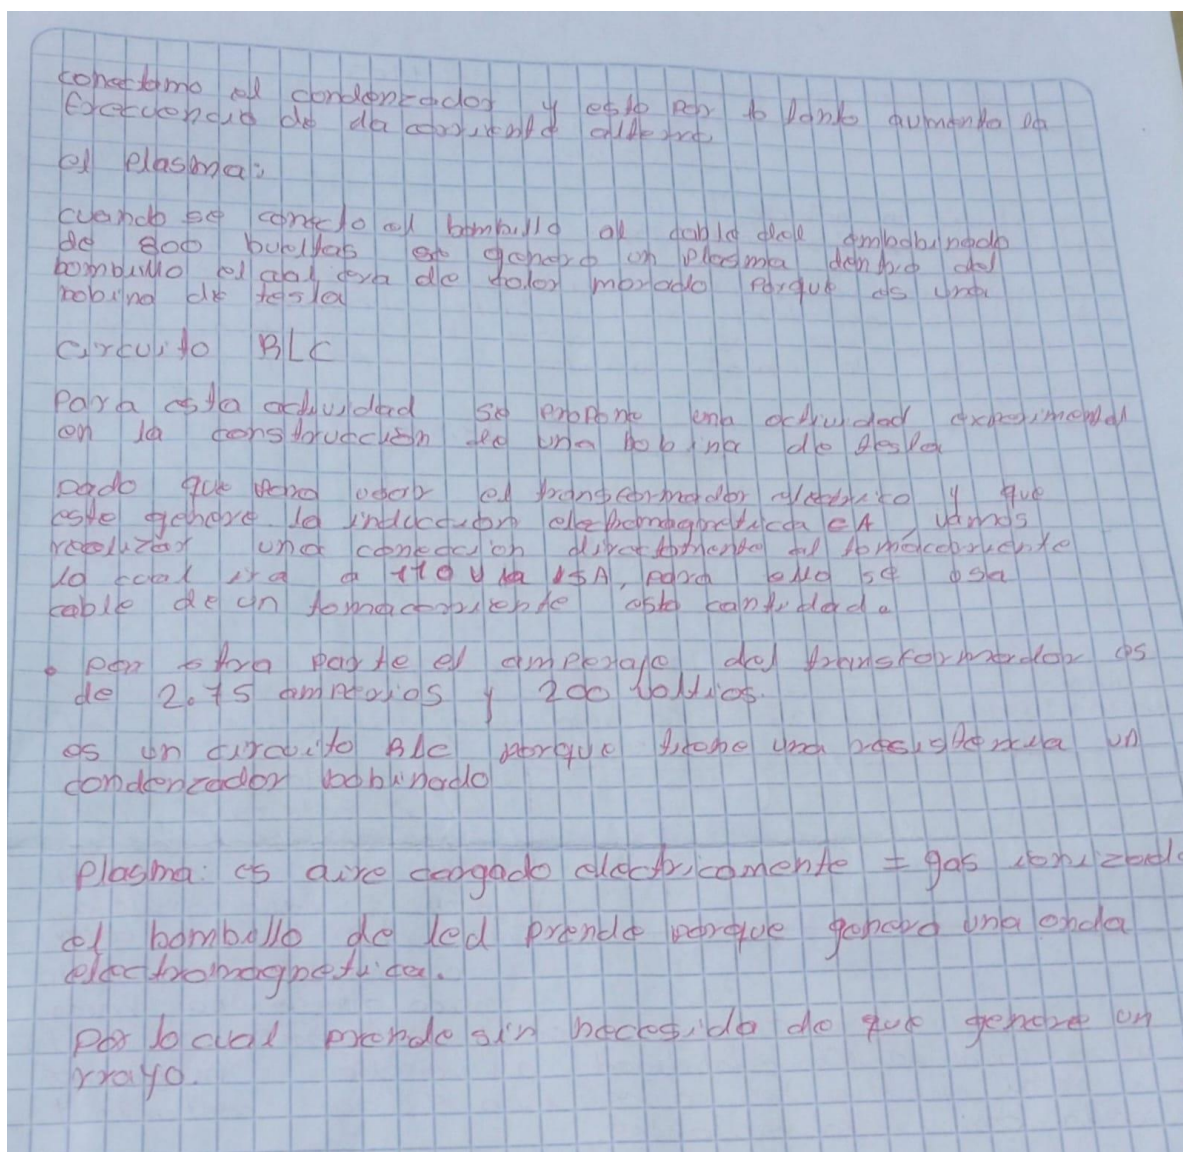 conectamo el condenzador y esto por lo tanto aumenta la
frecuencia de la corriente alterna
el plasma:
cuando se conecto el bombillo al cable del embobinado
de 800 bueltas se genero un plasma dentro del
bombillo el cual era de color morado porque es una
bobina de tesla
Circuito RLC
Para esta actividad se propone una actividad experimental
en la construcción de una bobina de tesla
Dado que usar el transformador electrico y que
este genere la induccion electromagnetica CA, vamos
realizar una coneccion directamente al tomacorriente
la cual ira a 110 v 15A, para ello se usa
cable de un tomacorriente esta cantidad.
• Por otra parte el amperaje del transformador es
de 2.75 amperios y 200 voltios.
es un circuito RLC porque tiene una resistencia un
condenzador bobinado
Plasma: es aire cargado electricamente = gas ionizado
el bombillo de led prende porque genera una onda
electromagnetica.
Por lo cual prende sin necesida de que genere un
rrayo.